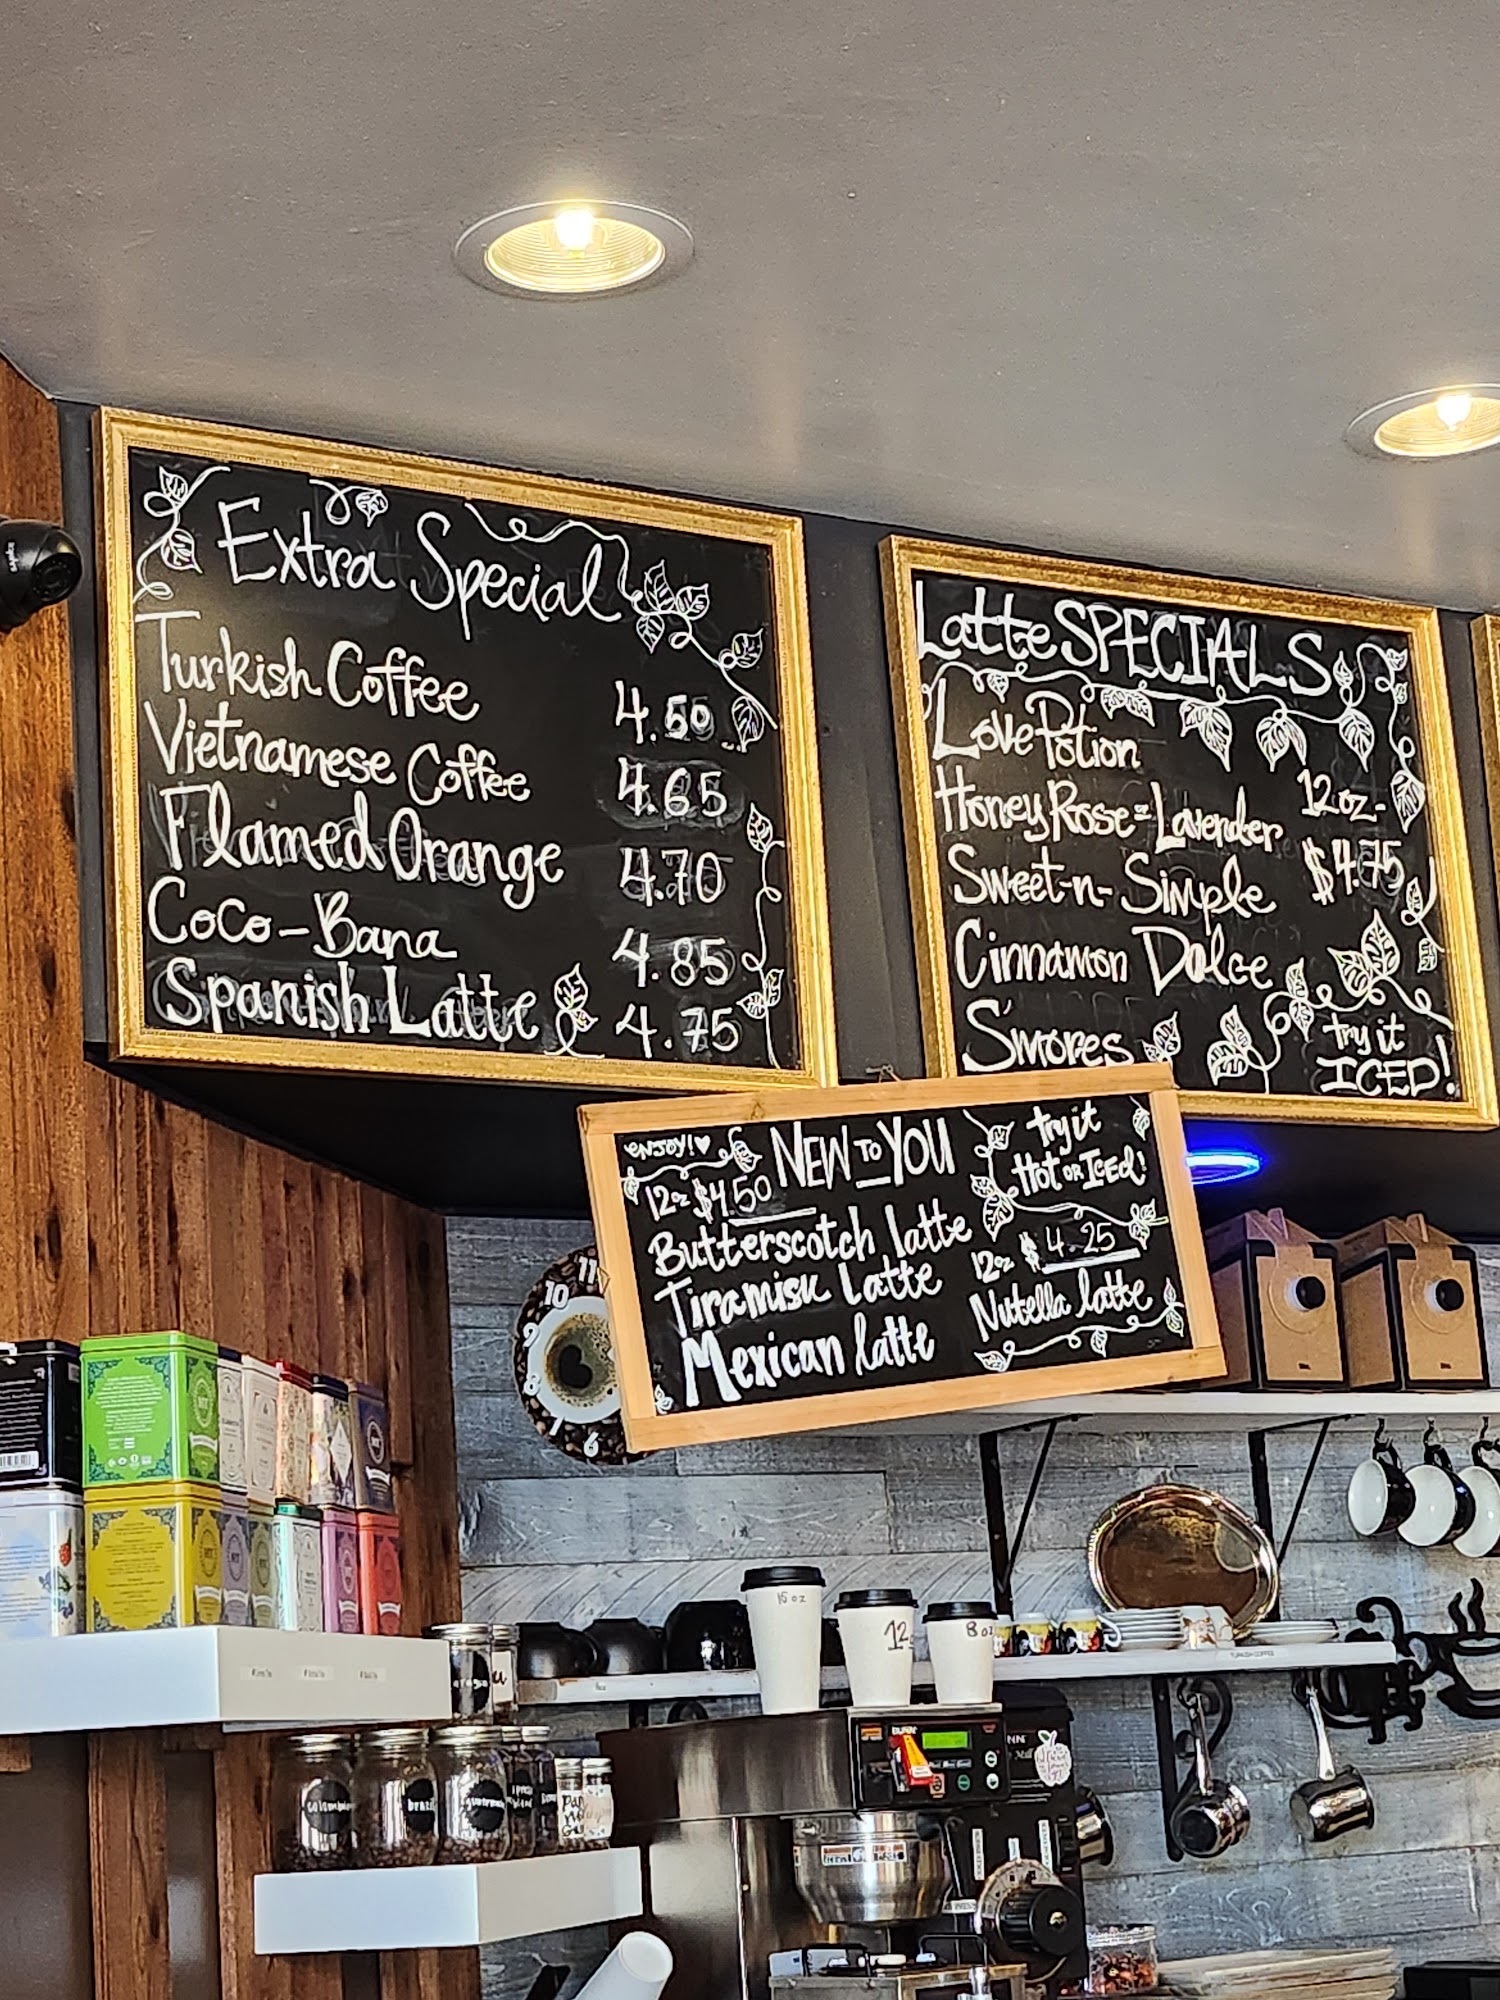 Extra Special
Turkish Coffee 4.50
Vietnamese Coffee 4.65
Flamed Orange 4.70
CoCo-Bana 4.85
Spanish Latte 4.75
Latte SPECIALS
Love Potion
Honey Rose=Lavender
Sweet-n-Simple
Cinnamon Dolce
S'mores
12oz-
$4.75
try it
ICED!
ENJOY!
NEW TO YOU
12oz $4.50
Butterscotch latte
Tiramisu Latte
Mexican latte
try it
HOT OR ICED!
12oz $4.25
Nutella latte
11
10
9
8
7
6
15 oz
12
8 oz
TURKISH COFFEE
BUNN
colombia
brazil